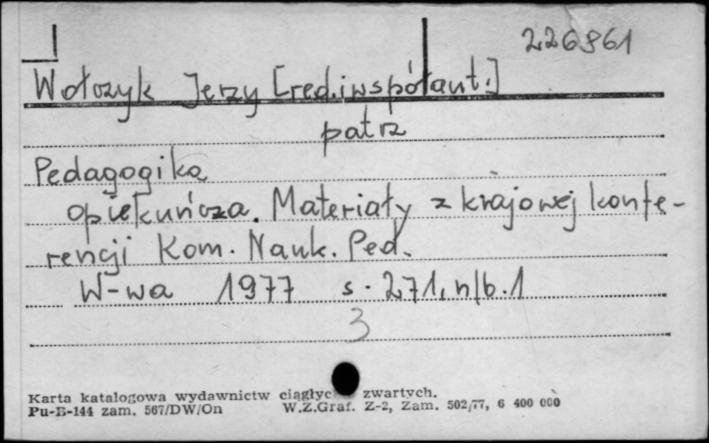 226861
Wołczyk Jerzy [red. i współaut.]
patrz
Pedagogika
opiekuńcza. Materiały z krajowej konfe-
rencji Kom. Nauk. Ped.
W-wa 1977 s. 271, nlb. 1
3
Karta katalogowa wydawnictw ciągłyc zwartych.
Pu-B-144 zam. 567/DW/On W.Z.Graf. Z-2, Zam. 502/77, 6 400 000